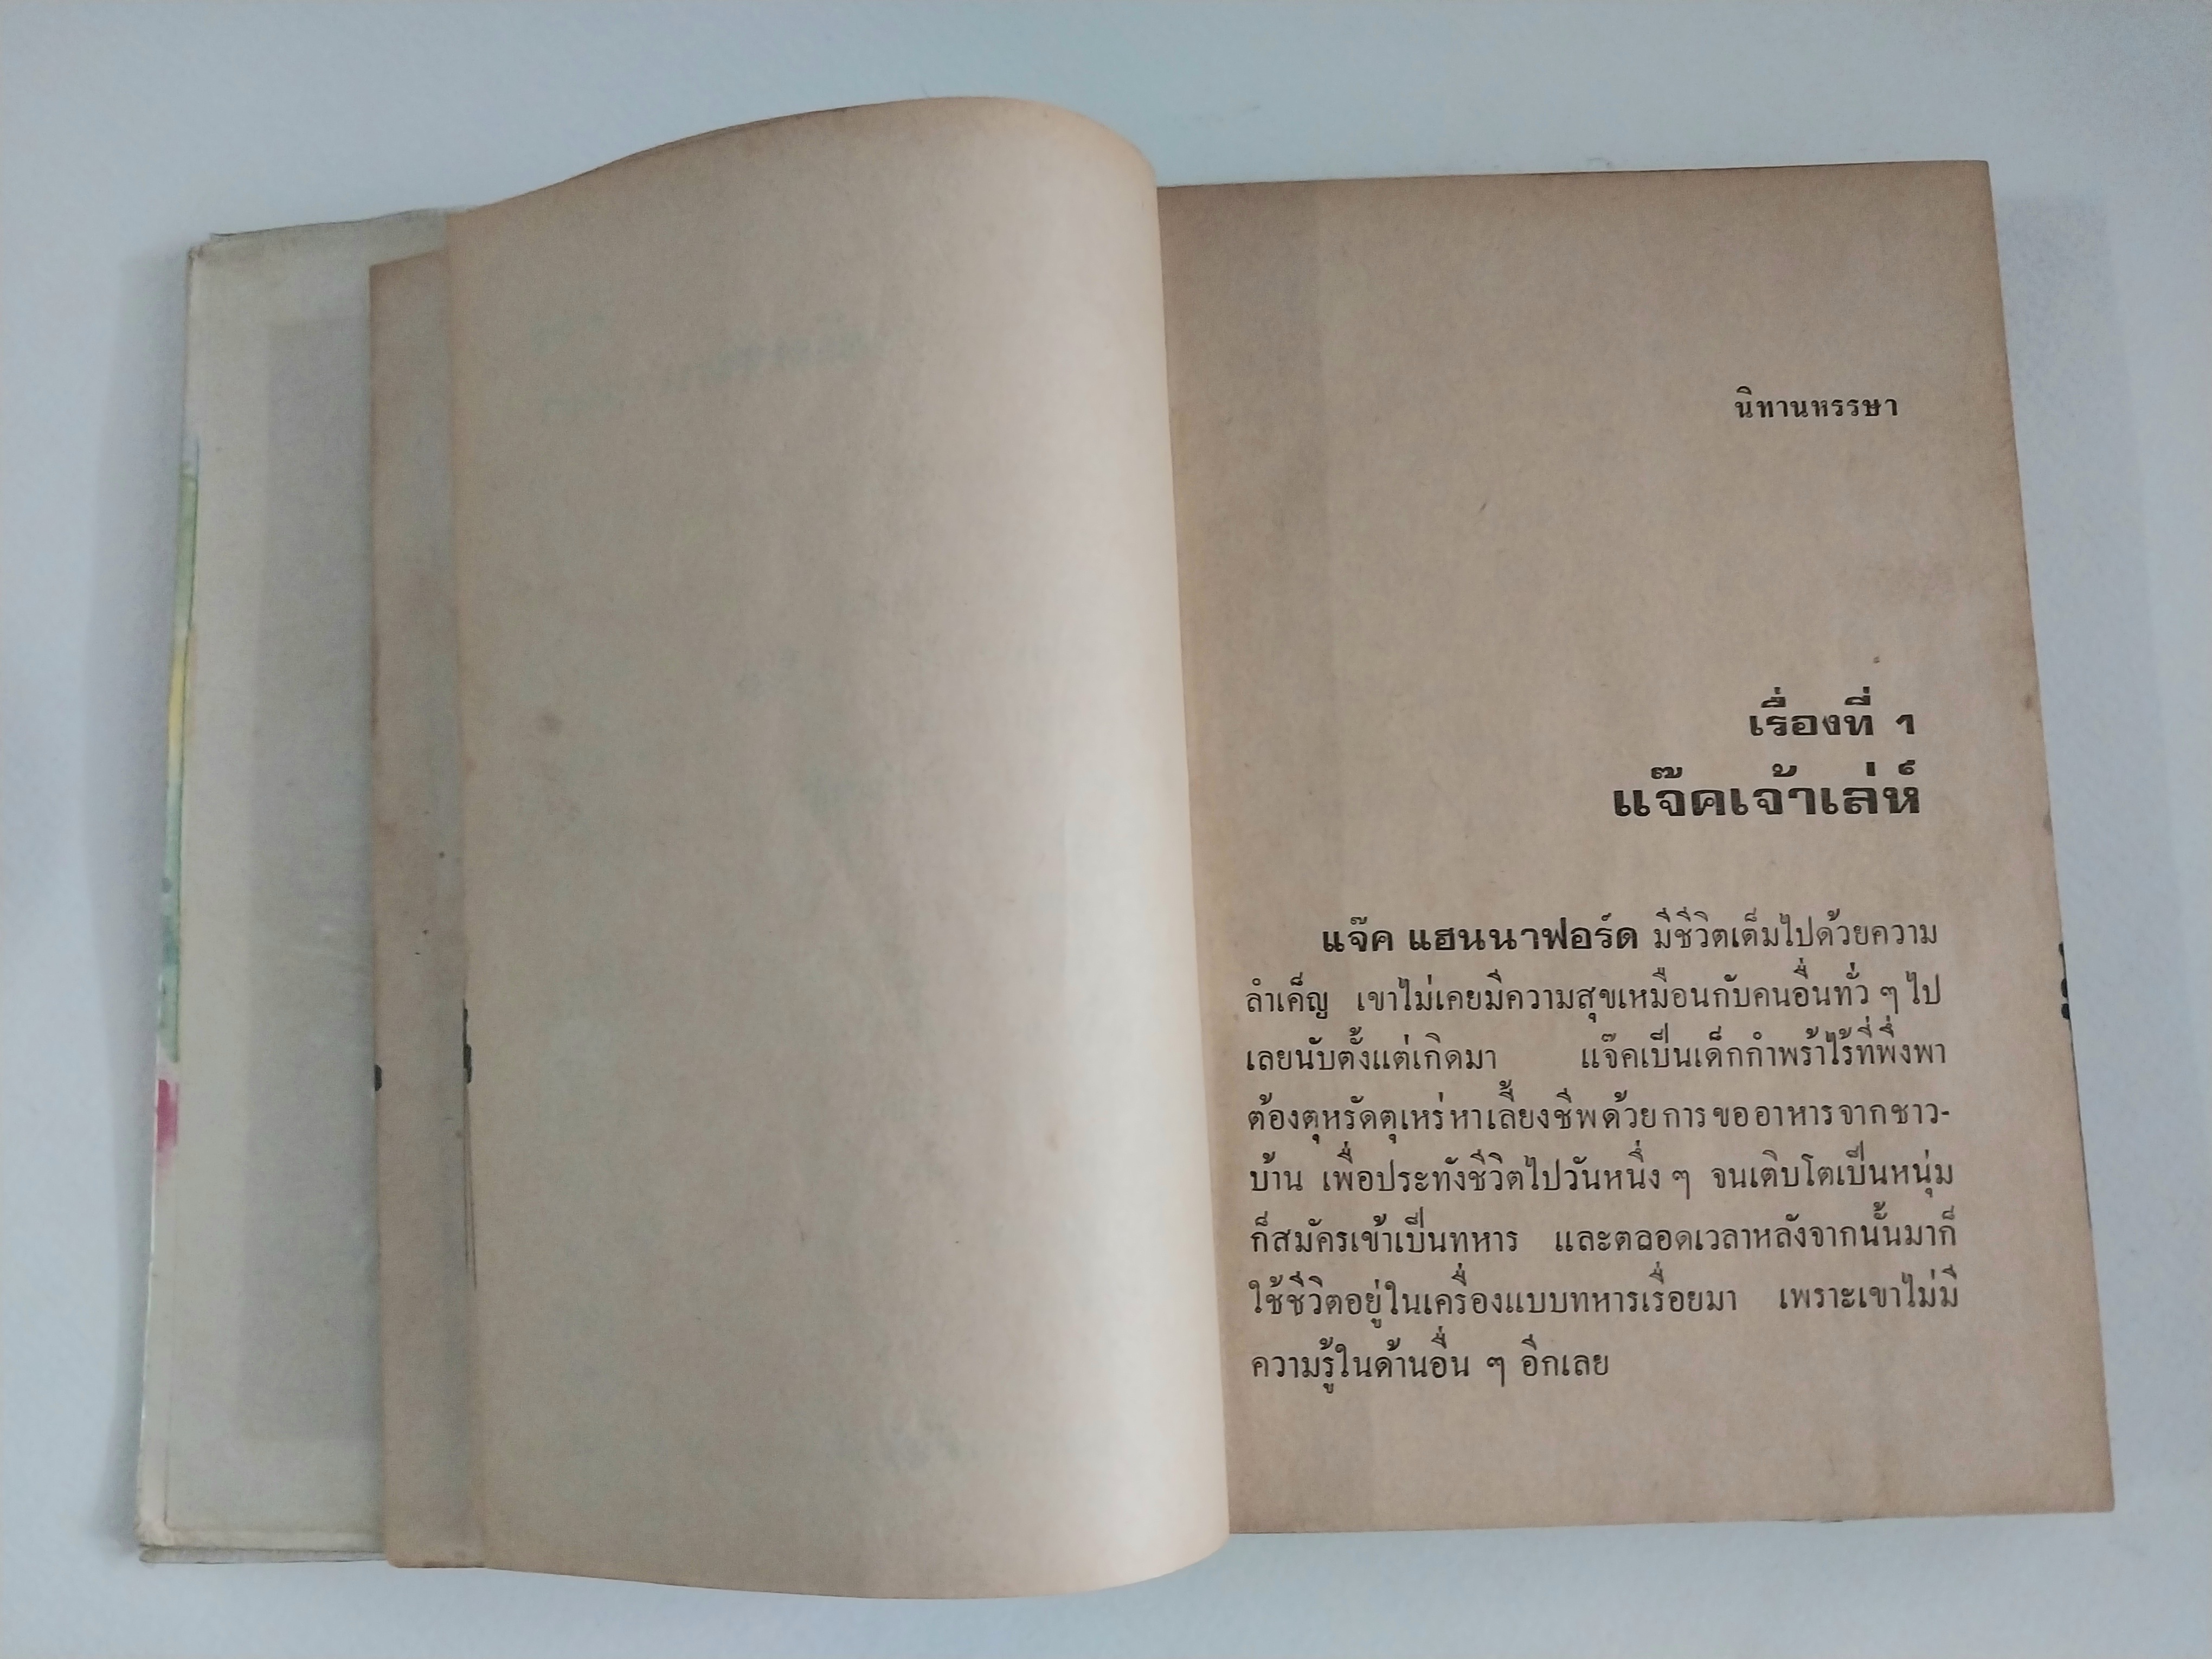 นิทานหรรษา
เรื่องที่ 1
แจ๊คเจ้าเล่ห์
แจ๊ค แฮนนาฟอร์ด มีชีวิตเต็มไปด้วยความ
ลำเค็ญ เขาไม่เคยมีความสุขเหมือนกับคนอื่นทั่ว ๆ ไป
เลยนับตั้งแต่เกิดมา แจ๊คเป็นเด็กกำพร้าไร้ที่พึ่งพา
ต้องตุหรัดตุเหร่หาเลี้ยงชีพด้วยการขออาหารจากชาว-
บ้าน เพื่อประทังชีวิตไปวันหนึ่ง ๆ จนเติบโตเป็นหนุ่ม
ก็สมัครเข้าเป็นทหาร และตลอดเวลาหลังจากนั้นมาก็
ใช้ชีวิตอยู่ในเครื่องแบบทหารเรื่อยมา เพราะเขาไม่มี
ความรู้ในด้านอื่น ๆ อีกเลย